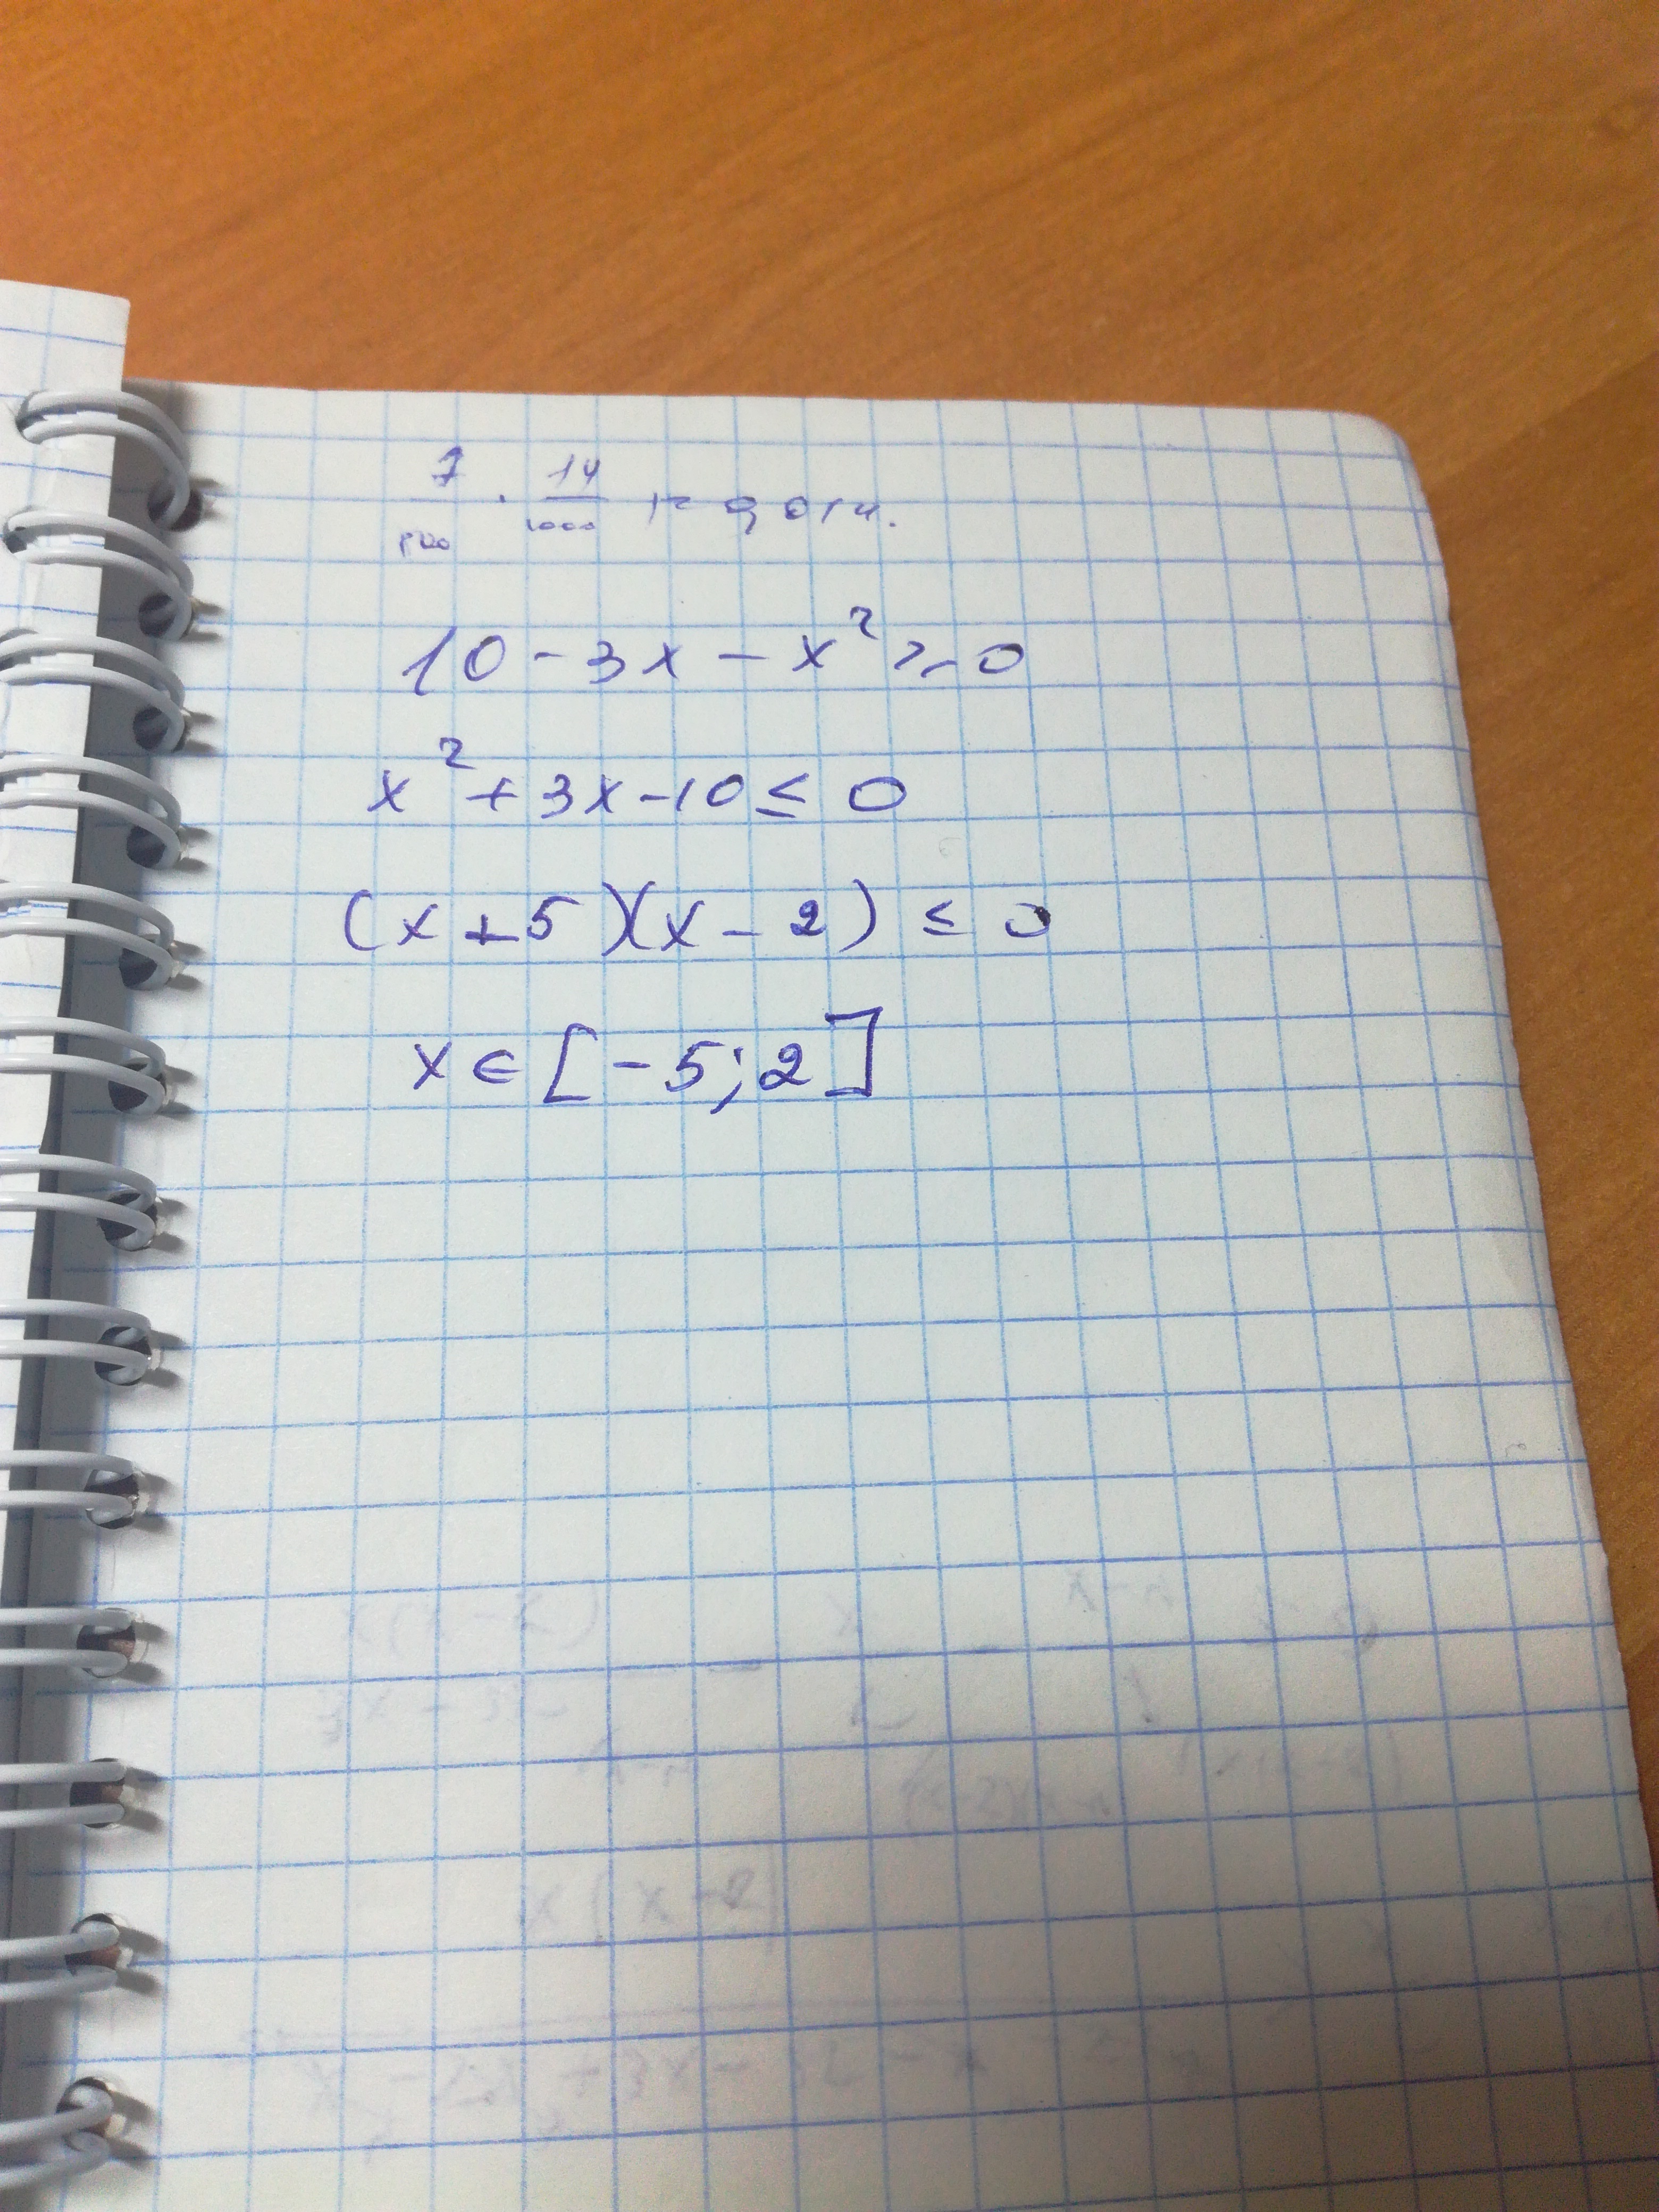 7/500 · 14/1000 = 0,014.
10 - 3x - x² ≥ 0
x² + 3x - 10 ≤ 0
(x + 5)(x - 2) ≤ 0
x ∈ [-5; 2]